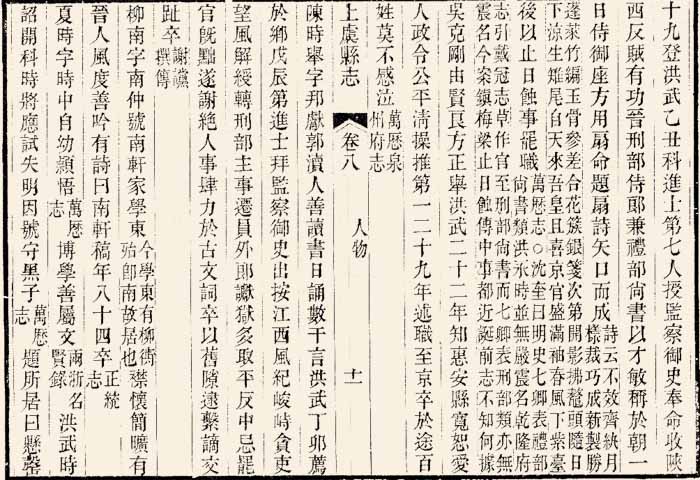 十九登洪武乙丑科進士第七人授監察御史奉命收陝
西反賊有功晉刑部侍郎兼禮部尚書以才敏稱於朝一
日侍御座方用扇命題扇詩矢口而成詩云不效齊紈月
樣裁巧成新製勝
蓬萊竹編玉骨參差合花簇銀箋次第開影拂鰲頭隨日
下涼生雉尾自天來吾皇且喜京官盛滿袖春風下紫臺
後以止日蝕事罷職萬歷志○沈奎曰明史七卿表禮部
尚書類洪永時並無嚴震名乾隆府
志引戴冠志草作官至刑部尚書而七卿表刑部類亦無
震名今案鎮梅梁止日蝕傳中事都近誕前志不知何據
吳克剛由賢良方正舉洪武二十二年知惠安縣寬恕愛
人政令公平淸操推第一二十九年述職至京卒於途百
姓莫不感泣萬歷泉
州府志
上虞縣志 卷八 人物 十一
陳時舉字邦獻郭瀆人善讀書日誦數千言洪武丁卯薦
於鄉戊辰第進士拜監察御史出按江西風紀峻峙貪吏
望風解綬轉刑部主事遷員外郎讞獄多取平反中忌罷
官旣黜遂謝絕人事肆力於古文詞卒以舊隙遠繫謫交
趾卒謝讜
撰傳
柳南字南仲號南軒家學東今學東有柳衖
殆卽南故居也襟懷簡曠有
晉人風度善吟有詩曰南軒稿年八十四卒正統
志
夏時字時中自幼穎悟萬歷
志博學善屬文兩浙名
賢錄洪武時
詔開科時將應試失明因號守黑子萬歷
志題所居曰懸罄